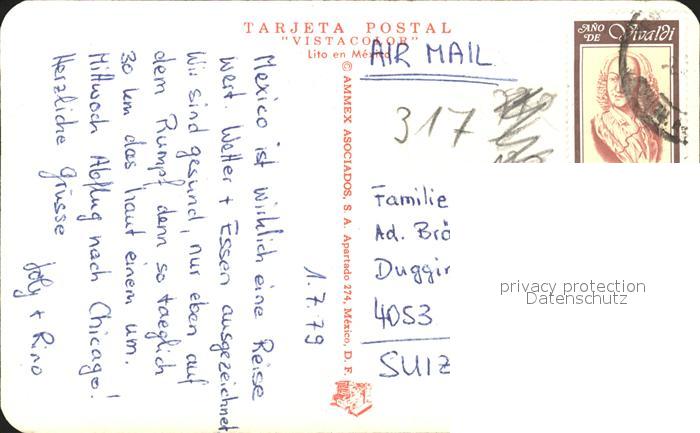 TARJETA POSTAL
"VISTACOLOR"
Lito en México
AÑO DE Vivaldi
AIR MAIL
317
© AMMEX ASOCIADOS, S. A. Apartado 274, México, D. F.
1.7.79
Mexico ist wirklich eine Reise
wert. Wetter + Essen ausgezeichnet
Wir sind gesund, nur eben auf
dem Rumpf denn so taeglich
30 km das haut einem um.
Mittwoch Abflug nach Chicago!
Herzliche Grüsse
+ Rino
Familie
Ad. Brö
Duggin
4053
SUIZ
privacy protection
Datenschutz